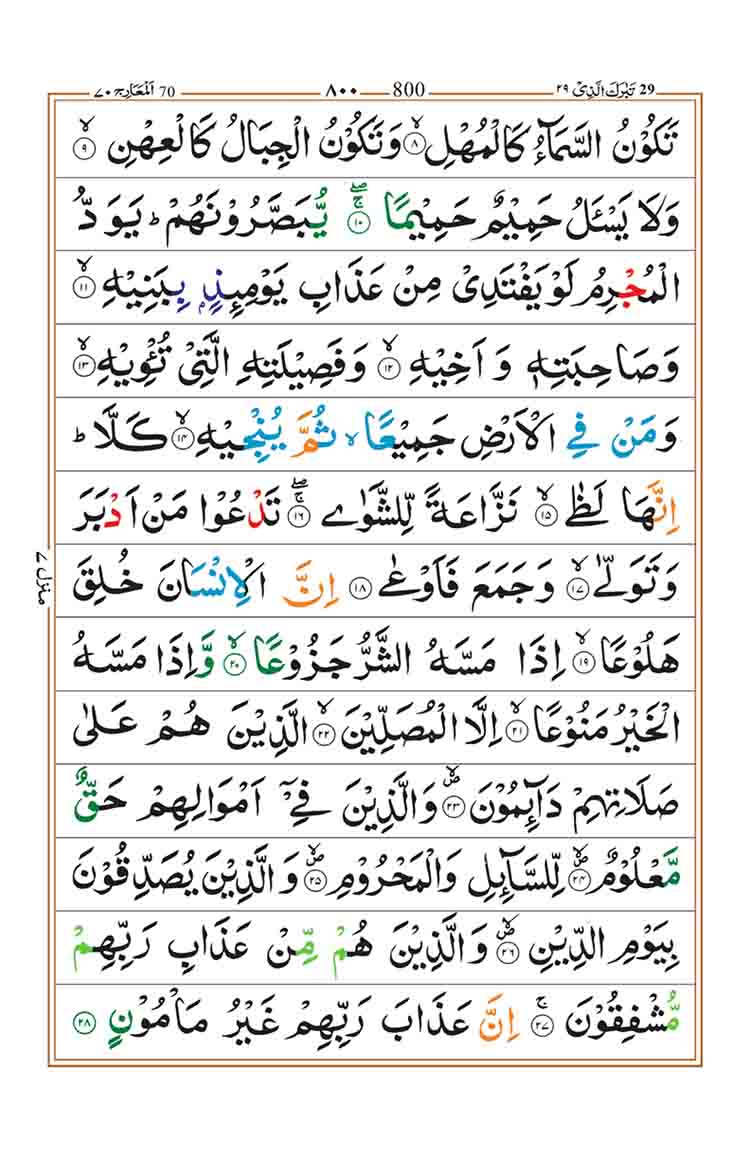 29 تَبٰرَكَ الَّذِىْ ٢٩ 800 ٨٠٠ 70 اَلْمَعَارِجِ ٧٠
تَكُوْنُ السَّمَآءُ كَالْمُهْلِ ۙ‏﴿۸﴾ وَتَكُوْنُ الْجِبَالُ كَالْعِهْنِ ۙ‏﴿۹﴾
وَلَا يَسْــَٔلُ حَمِيْمٌ حَمِيْمًا ۚۖ‏﴿۱۰﴾ يُّبَصَّرُوْنَهُمْ‌ؕ يَوَدُّ
الْمُجْرِمُ لَوْ يَفْتَدِىْ مِنْ عَذَابِ يَوْمِٮِٕذٍۢ بِبَنِيْهِ ۙ‏﴿۱۱﴾
وَصَاحِبَتِهٖ وَاَخِيْهِ ۙ‏﴿۱۲﴾ وَفَصِيْلَتِهِ الَّتِىْ تُـــْٔوِيْهِ ۙ‏﴿۱۳﴾
وَمَنْ فِى الْاَرْضِ جَمِيْعًا ۙ ثُمَّ يُنْجِيْهِ ۙ‏﴿۱۴﴾ كَلَّا ؕ
اِنَّهَا لَظٰى ۙ‏﴿۱۵﴾ نَزَّاعَةً لِّلشَّوٰى ۚۖ‏﴿۱۶﴾ تَدْعُوْا مَنْ اَدْبَرَ
وَتَوَلّٰى ۙ‏﴿۱۷﴾ وَجَمَعَ فَاَوْعٰى‏ ﴿۱۸﴾ اِنَّ الْاِنْسَانَ خُلِقَ
هَلُوْعًا ۙ‏﴿۱۹﴾ اِذَا مَسَّهُ الشَّرُّ جَزُوْعًا ۙ‏﴿۲۰﴾ وَّاِذَا مَسَّهُ
الْخَيْرُ مَنُوْعًا ۙ‏﴿۲۱﴾ اِلَّا الْمُصَلِّيْنَ ۙ‏﴿۲۲﴾ الَّذِيْنَ هُمْ عَلٰى
صَلَاتِهِمْ دَآٮِٕمُوْنَ ۙ‏﴿۲۳﴾ وَالَّذِيْنَ فِىْۤ اَمْوَالِهِمْ حَقٌّ
مَّعْلُوْمٌ ۙ‏﴿۲۴﴾ لِّلسَّآٮِٕلِ وَالْمَحْرُوْمِ ۙ‏﴿۲۵﴾ وَالَّذِيْنَ يُصَدِّقُوْنَ
بِيَوْمِ الدِّيْنِ ۙ‏﴿۲۶﴾ وَالَّذِيْنَ هُمْ مِّنْ عَذَابِ رَبِّهِمْ
مُّشْفِقُوْنَ ۚ‏﴿۲۷﴾ اِنَّ عَذَابَ رَبِّهِمْ غَيْرُ مَاْمُوْنٍ‏ ﴿۲۸﴾
منزل ٧